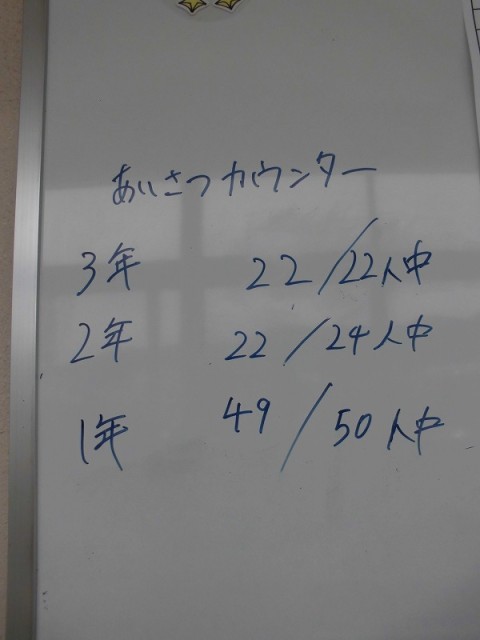 あいさつカウンター
3年 22/22人中
2年 22/24人中
1年 49/50人中